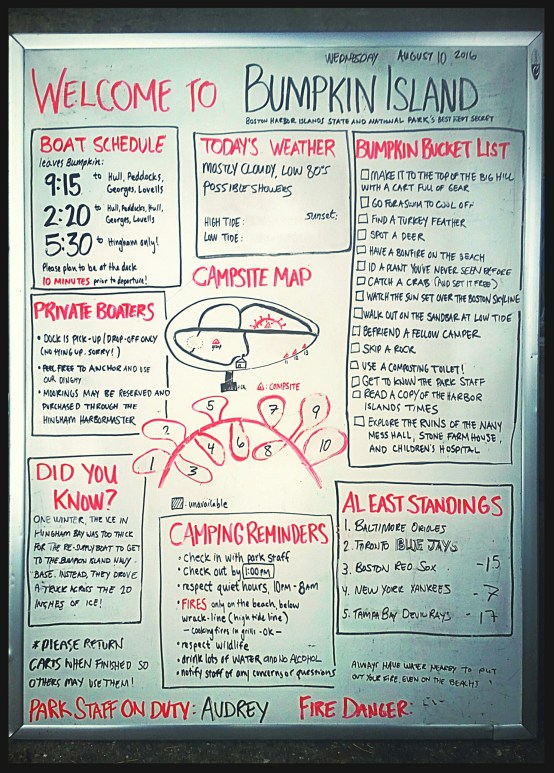 WEDNESDAY AUGUST 10, 2016
WELCOME TO BUMPKIN ISLAND
BOSTON HARBOR ISLANDS STATE AND NATIONAL PARK'S BEST KEPT SECRET
BOAT SCHEDULE
leaves Bumpkin:
9:15 to Hull, Peddocks,
Georges, Lovells
2:20 to Hull, Peddocks, Hull,
Georges, Lovells
5:30 to Hingham only!
Please plan to be at the dock
10 MINUTES prior to departure!
TODAY'S WEATHER
MOSTLY CLOUDY, LOW 80'S
POSSIBLE SHOWERS
HIGH TIDE: sunset:
LOW TIDE:
BUMPKIN BUCKET LIST
MAKE IT TO THE TOP OF THE BIG HILL
WITH A CART FULL OF GEAR
GO FOR A SWIM TO COOL OFF
FIND A TURKEY FEATHER
SPOT A DEER
HAVE A BONFIRE ON THE BEACH
ID A PLANT YOU'VE NEVER SEEN BEFORE
CATCH A CRAB (AND SET IT FREE)
WATCH THE SUN SET OVER THE BOSTON SKYLINE
WALK OUT ON THE SANDBAR AT LOW TIDE
BEFRIEND A FELLOW CAMPER
SKIP A ROCK
USE A COMPOSTING TOILET!
GET TO KNOW THE PARK STAFF
READ A COPY OF THE HARBOR
ISLANDS TIMES
EXPLORE THE RUINS OF THE NAVY
MESS HALL, STONE FARM HOUSE,
AND CHILDREN'S HOSPITAL
PRIVATE BOATERS
• DOCK IS PICK-UP/DROP-OFF ONLY
(NO TYING UP. SORRY!)
• FEEL FREE TO ANCHOR AND USE
OUR DINGHY
• MOORINGS MAY BE RESERVED AND
PURCHASED THROUGH THE
HINGHAM HARBORMASTER
CAMPSITE MAP
group
11 12 13
: CAMPSITE
1 2 3 4 5 6 7 8 9 10
: unavailable
DID YOU
KNOW?
ONE WINTER, THE ICE IN
HINGHAM BAY WAS TOO THICK
FOR THE RE-SUPPLY BOAT TO GET
TO THE BUMPKIN ISLAND NAVY
BASE. INSTEAD, THEY DROVE
A TRUCK ACROSS THE 20
INCHES OF ICE!
CAMPING REMINDERS
• check in with park staff
• Check out by 1:00PM
• respect quiet hours, 10PM - 8AM
• FIRES only on the beach, below
wrack-line (high tide line)
- cooking fires in grills -OK-
• respect wildlife
• drink lots of WATER and NO ALCOHOL
• notify staff of any concerns or questions
AL EAST STANDINGS
1. BALTIMORE ORIOLES
2. TORONTO BLUE JAYS
3. BOSTON RED SOX -15
4. NEW YORK YANKEES -7
5. TAMPA BAY DEVIL RAYS -17
*PLEASE RETURN
CARTS WHEN FINISHED SO
OTHERS MAY USE THEM!
ALWAYS HAVE WATER NEARBY TO PUT
OUT YOUR FIRE, EVEN ON THE BEACH!
PARK STAFF ON DUTY: AUDREY FIRE DANGER: